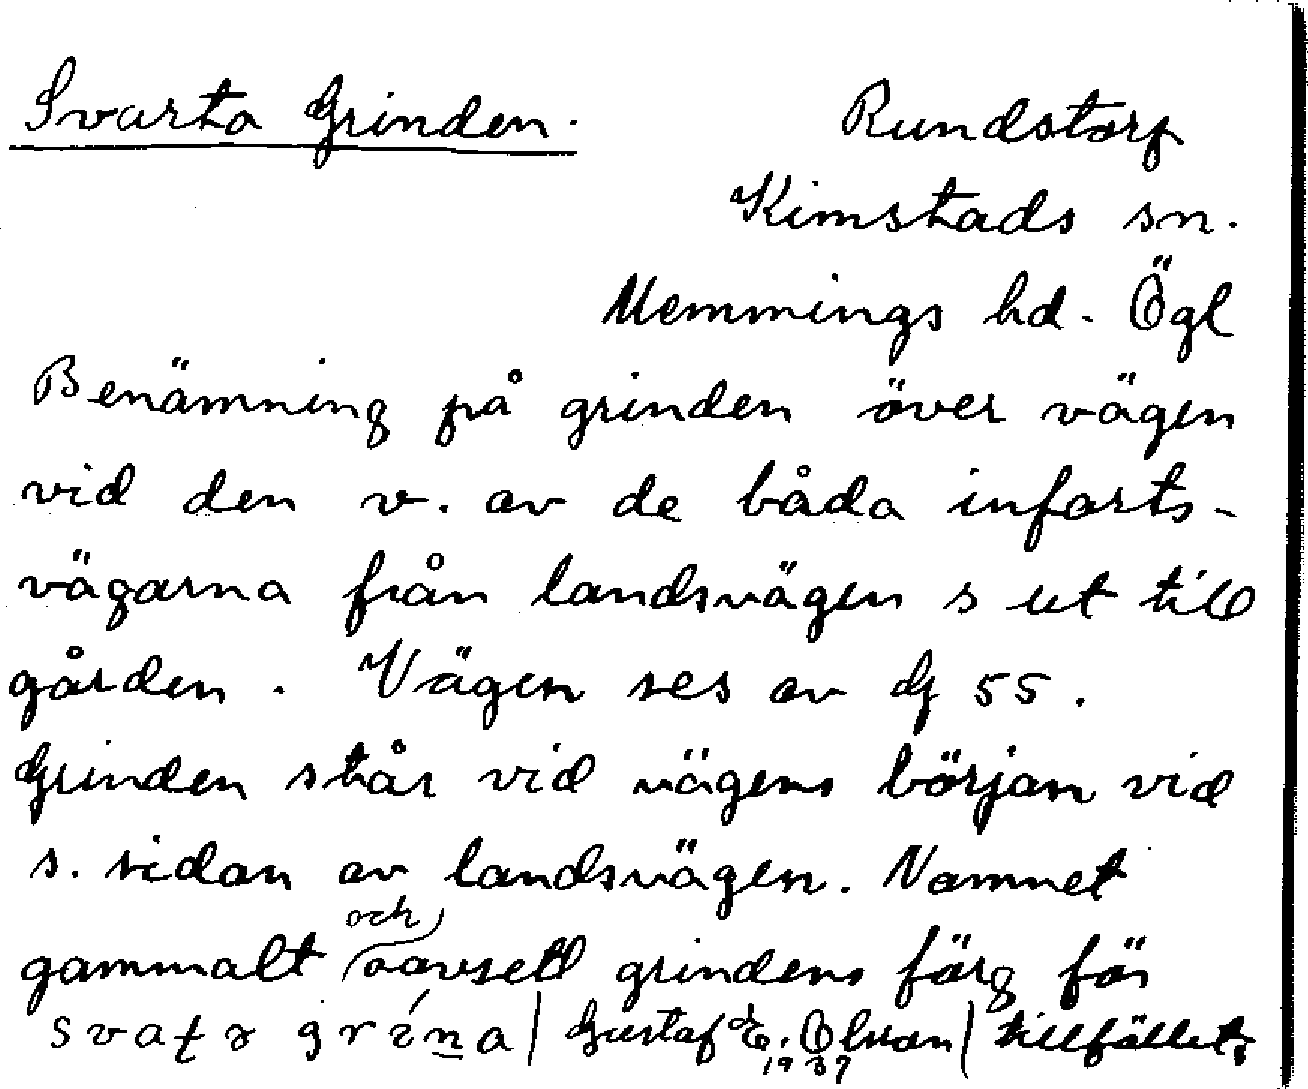 Svarta Grinden.
Rundstorp
Kimstads sn.
Memmings hd. Ögl
Benämning på grinden över vägen
vid den v. av de båda infarts-
vägarna från landsvägen s ut till
gården. Vägen ses av G 55.
Grinden står vid vägens början vid
s. sidan av landsvägen. Namnet
gammalt och oavsett grindens färg för
tillfället.
svaṭɤ grína | Gustaf E. Olsson |
1937